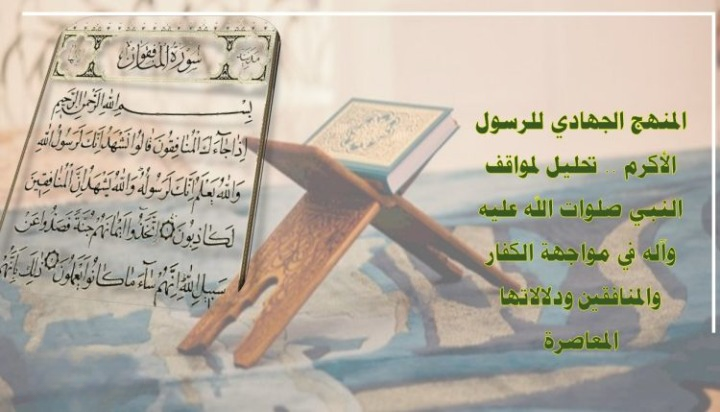 المنهج الجهادي للرسول
الأكرم .. تحليل لمواقف
النبي صلوات الله عليه
وآله في مواجهة الكفار
والمنافقين ودلالاتها
المعاصرة
سُورَةُ المُنَافِقُونَ
بِسْمِ اللهِ الرَّحْمٰنِ الرَّحِيمِ
إِذَا جَاءَكَ الْمُنَافِقُونَ قَالُوا نَشْهَدُ إِنَّكَ لَرَسُولُ اللهِ
وَاللهُ يَعْلَمُ إِنَّكَ لَرَسُولُهُ وَاللهُ يَشْهَدُ إِنَّ الْمُنَافِقِينَ
لَكَاذِبُونَ اتَّخَذُوا أَيْمَانَهُمْ جُنَّةً فَصَدُّوا عَنْ
سَبِيلِ اللهِ إِنَّهُمْ سَاءَ مَا كَانُوا يَعْمَلُونَ ذٰلِكَ بِأَنَّهُمْ